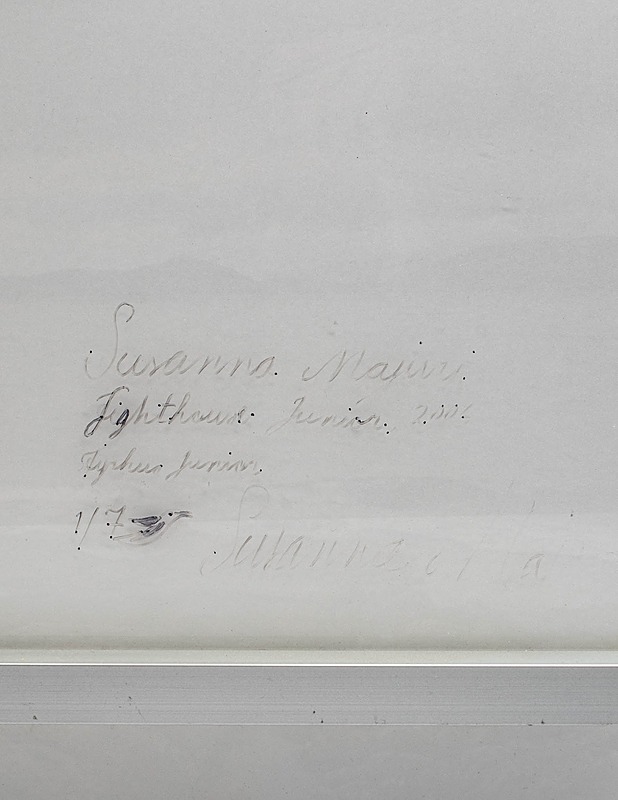 Susanna Majuri
Lighthouse Junior, 200
Fyrhus Junior
1/7
Susanna Ma